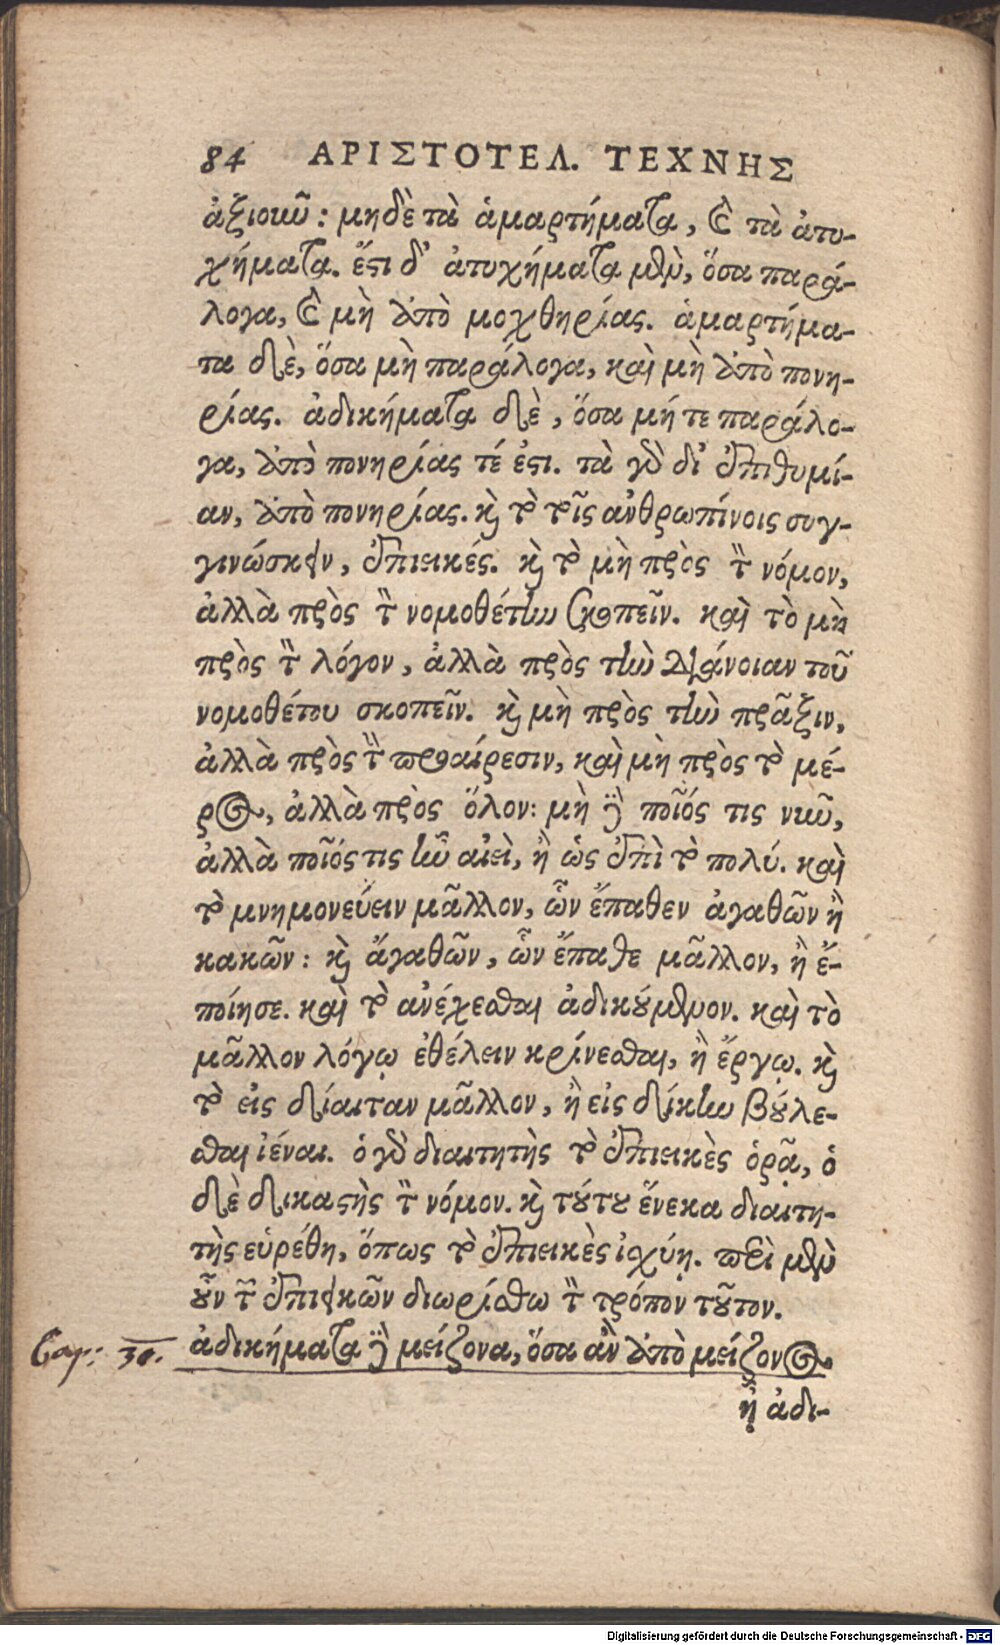 84 ΑΡΙΣΤΟΤΕΛ. ΤΕΧΝΗΣ
ἀξιοῦν: μηδὲ τὰ ἁμαρτήματα, καὶ τὰ ἀτυ-
χήματα. ἔστι δ' ἀτυχήματα μὲν, ὅσα παρά-
λογα, καὶ μὴ ἀπὸ μοχθηρίας. ἁμαρτήμα-
τα δὲ, ὅσα μὴ παράλογα, καὶ μὴ ἀπὸ πονη-
ρίας. ἀδικήματα δὲ, ὅσα μή τε παράλο-
γα, ἀπὸ πονηρίας τέ ἐστι. τὰ γὰρ δι' ἐπιθυμί-
αν, ἀπὸ πονηρίας. καὶ τὸ τοῖς ἀνθρωπίνοις συγ-
γινώσκειν, ἐπιεικές. καὶ τὸ μὴ πρὸς τὸν νόμον,
ἀλλὰ πρὸς τὸν νομοθέτην σκοπεῖν. καὶ τὸ μὴ
πρὸς τὸν λόγον, ἀλλὰ πρὸς τὴν διάνοιαν τοῦ
νομοθέτου σκοπεῖν. καὶ μὴ πρὸς τὴν πρᾶξιν,
ἀλλὰ πρὸς τὴν προαίρεσιν, καὶ μὴ πρὸς τὸ μέ-
ρος, ἀλλὰ πρὸς ὅλον: μὴ δὲ ποῖός τις νῦν,
ἀλλὰ ποῖός τις ἦν αἰεὶ, ἢ ὡς ἐπὶ τὸ πολύ. καὶ
τὸ μνημονεύειν μᾶλλον, ὧν ἔπαθεν ἀγαθῶν ἢ
κακῶν: καὶ ἀγαθῶν, ὧν ἔπαθε μᾶλλον, ἢ ἐ-
ποίησε. καὶ τὸ ἀνέχεσθαι ἀδικούμενον. καὶ τὸ
μᾶλλον λόγῳ ἐθέλειν κρίνεσθαι, ἢ ἔργῳ. καὶ
τὸ εἰς δίαιταν μᾶλλον, ἢ εἰς δίκην βούλε-
σθαι ἰέναι. ὁ γὰρ διαιτητὴς τὸ ἐπιεικὲς ὁρᾷ, ὁ
δὲ δικαστὴς τὸν νόμον. καὶ τούτου ἕνεκα διαιτη-
τὴς εὑρέθη, ὅπως τὸ ἐπιεικὲς ἰσχύῃ. περὶ μὲν
οὖν τῶν ἐπιεικῶν διωρίσθω τὸν τρόπον τοῦτον.
ἀδικήματα δὲ μείζονα, ὅσα ἂν ἀπὸ μείζονος
Cap: 30.
ᾖ ἀδι-
Digitalisierung gefördert durch die Deutsche Forschungsgemeinschaft - DFG